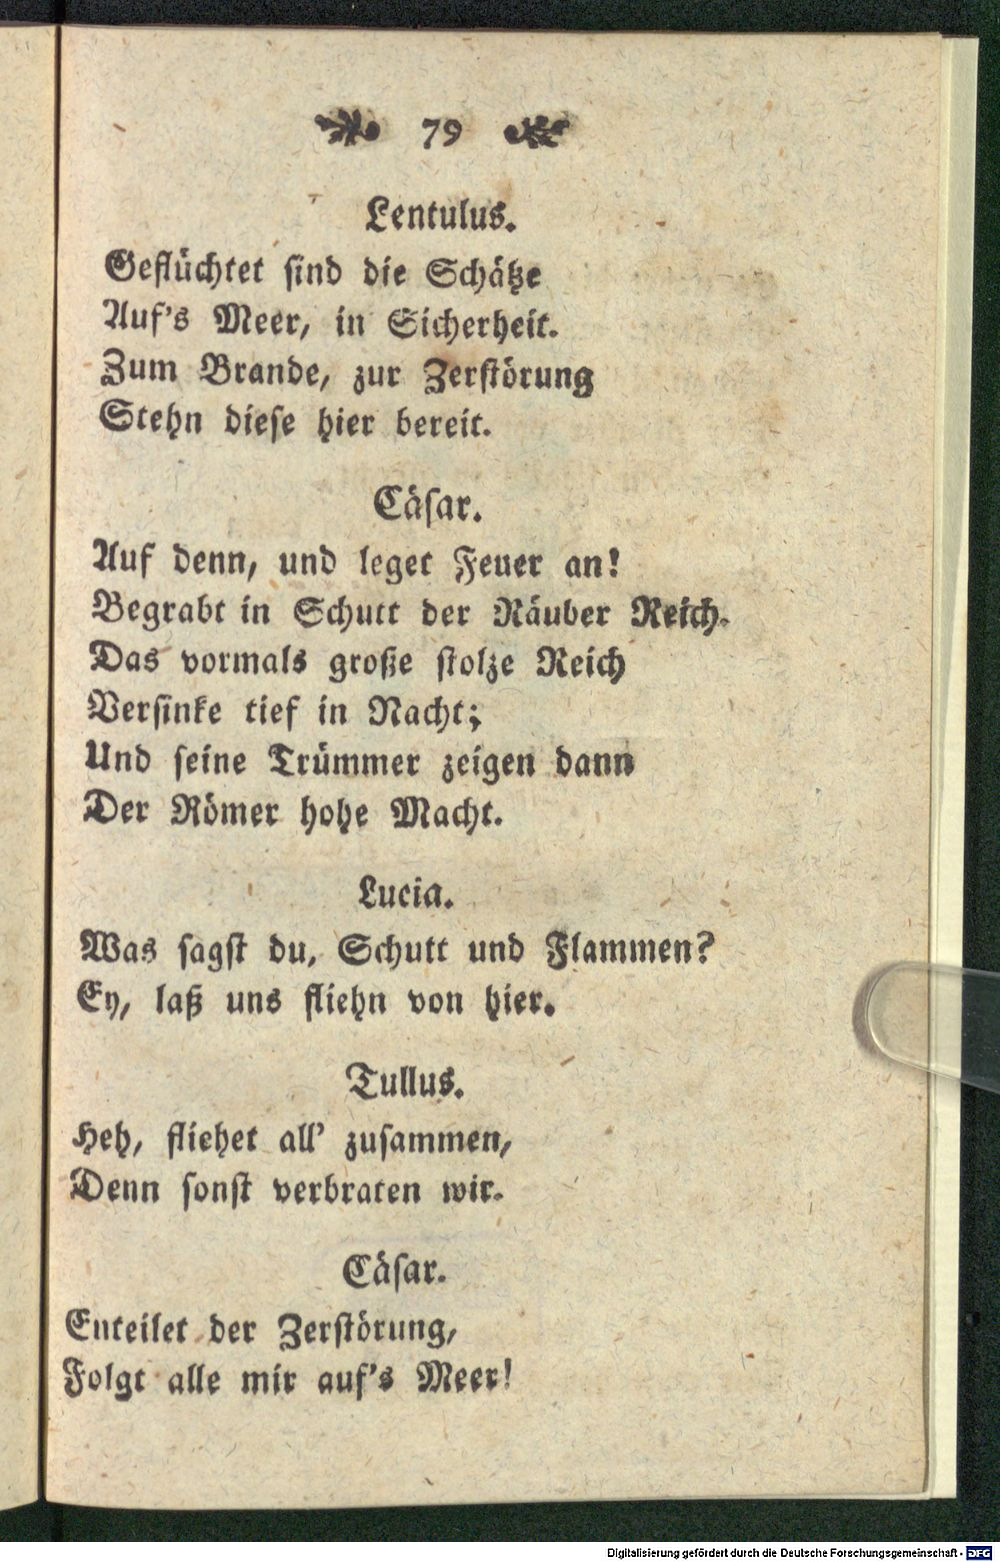 79
Lentulus.
Geflüchtet ſind die Schätze
Auf's Meer, in Sicherheit.
Zum Brande, zur Zerſtörung
Stehn dieſe hier bereit.
Cäſar.
Auf denn, und leget Feuer an!
Begrabt in Schutt der Räuber Reich.
Das vormals große ſtolze Reich
Verſinke tief in Nacht;
Und ſeine Trümmer zeigen dann
Der Römer hohe Macht.
Lucia.
Was ſagſt du, Schutt und Flammen?
Ey, laß uns fliehn von hier.
Tullus.
Heh, fliehet all' zuſammen,
Denn ſonſt verbraten wir.
Cäſar.
Enteilet der Zerſtörung,
Folgt alle mir auf's Meer!
Digitalisierung gefördert durch die Deutsche Forschungsgemeinschaft - DFG